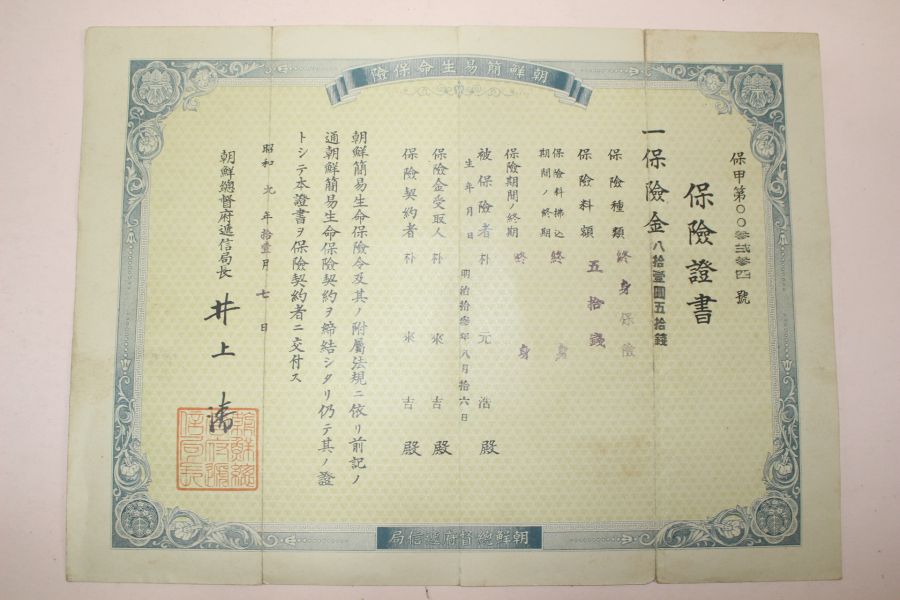 險保命生易簡鮮朝
保甲第〇〇參貳參四號
保險證書
一保險金八拾壹圓五拾錢
保險種類 終身保險
保險料額 五拾錢
保險料拂込期間ノ終期 終身
保險期間ノ終期 終身
被保險者 朴元浩殿
生年月日 明治拾參年八月拾六日
保險金受取人 朴來吉殿
保險契約者 朴來吉殿
朝鮮簡易生命保險令及其ノ附屬法規ニ依リ前記ノ
通朝鮮簡易生命保險契約ヲ締結シタリ仍テ其ノ證
トシテ本證書ヲ保險契約者ニ交付ス
昭和九年拾壹月七日
朝鮮總督府遞信局長 井上清
朝鮮總督府遞信局長
局信遞府督總鮮朝